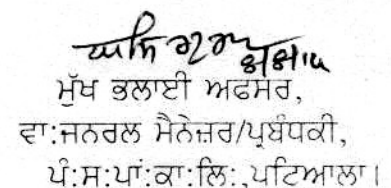 ਮੁੱਖ ਭਲਾਈ ਅਫਸਰ,
ਵਾ:ਜਨਰਲ ਮੈਨੇਜਰ/ਪ੍ਰਬੰਧਕੀ,
ਪੰ:ਸ:ਪਾਂ:ਕਾ:ਲਿ:,ਪਟਿਆਲਾ।